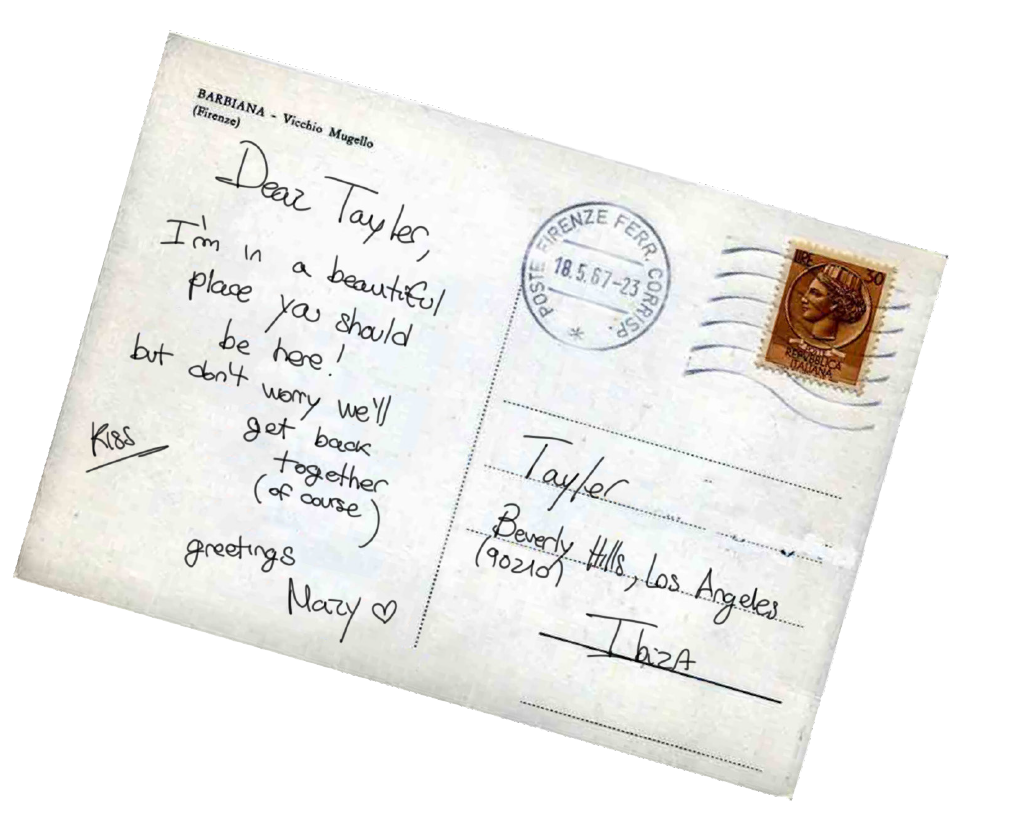 BARBIANA - Vicchio Mugello
(Firenze)
Dear Tayler,
I'm in a beautiful
place you should
be here!
but don't worry we'll
get back
together
(of course)
Kiss
greetings
Mary ♡
POSTE FIRENZE FERR. CORRISP.
18.5.67-23
LIRE 30
REPUBBLICA
ITALIANA
Tayler
Beverly Hills, Los Angeles
(90210)
IbizA